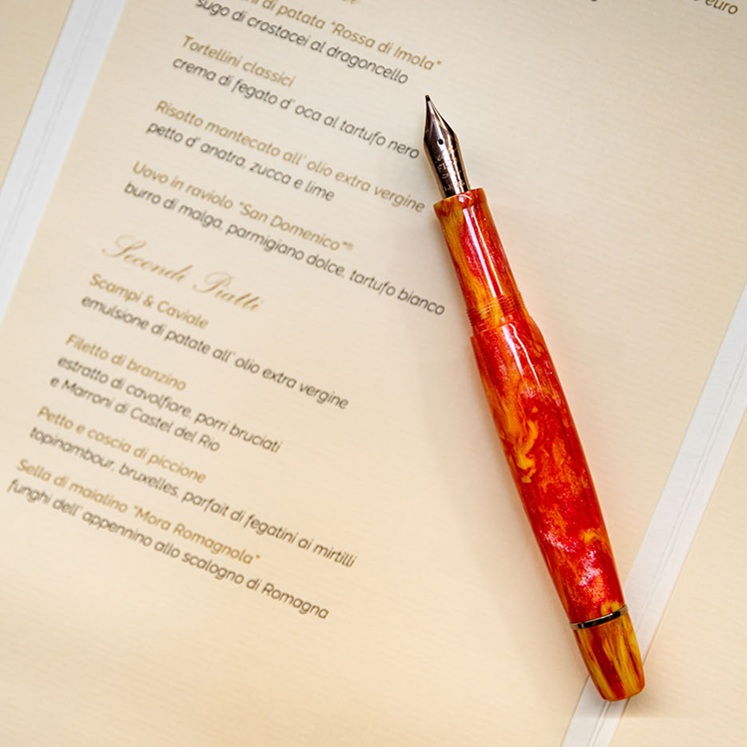 euro
di patata "Rossa di Imola"
sugo di crostacei al dragoncello
Tortellini classici
crema di fegato d' oca al tartufo nero
Risotto mantecato all' olio extra vergine
petto d' anatra, zucca e lime
Uovo in raviolo "San Domenico"®
burro di malga, parmigiano dolce, tartufo bianco
Secondi Piatti
Scampi & Caviale
emulsione di patate all' olio extra vergine
Filetto di branzino
estratto di cavolfiore, porri bruciati
e Marroni di Castel del Rio
Petto e coscia di piccione
topinambour, bruxelles, parfait di fegatini ai mirtilli
Sella di maialino "Mora Romagnola"
funghi dell' appennino allo scalogno di Romagna